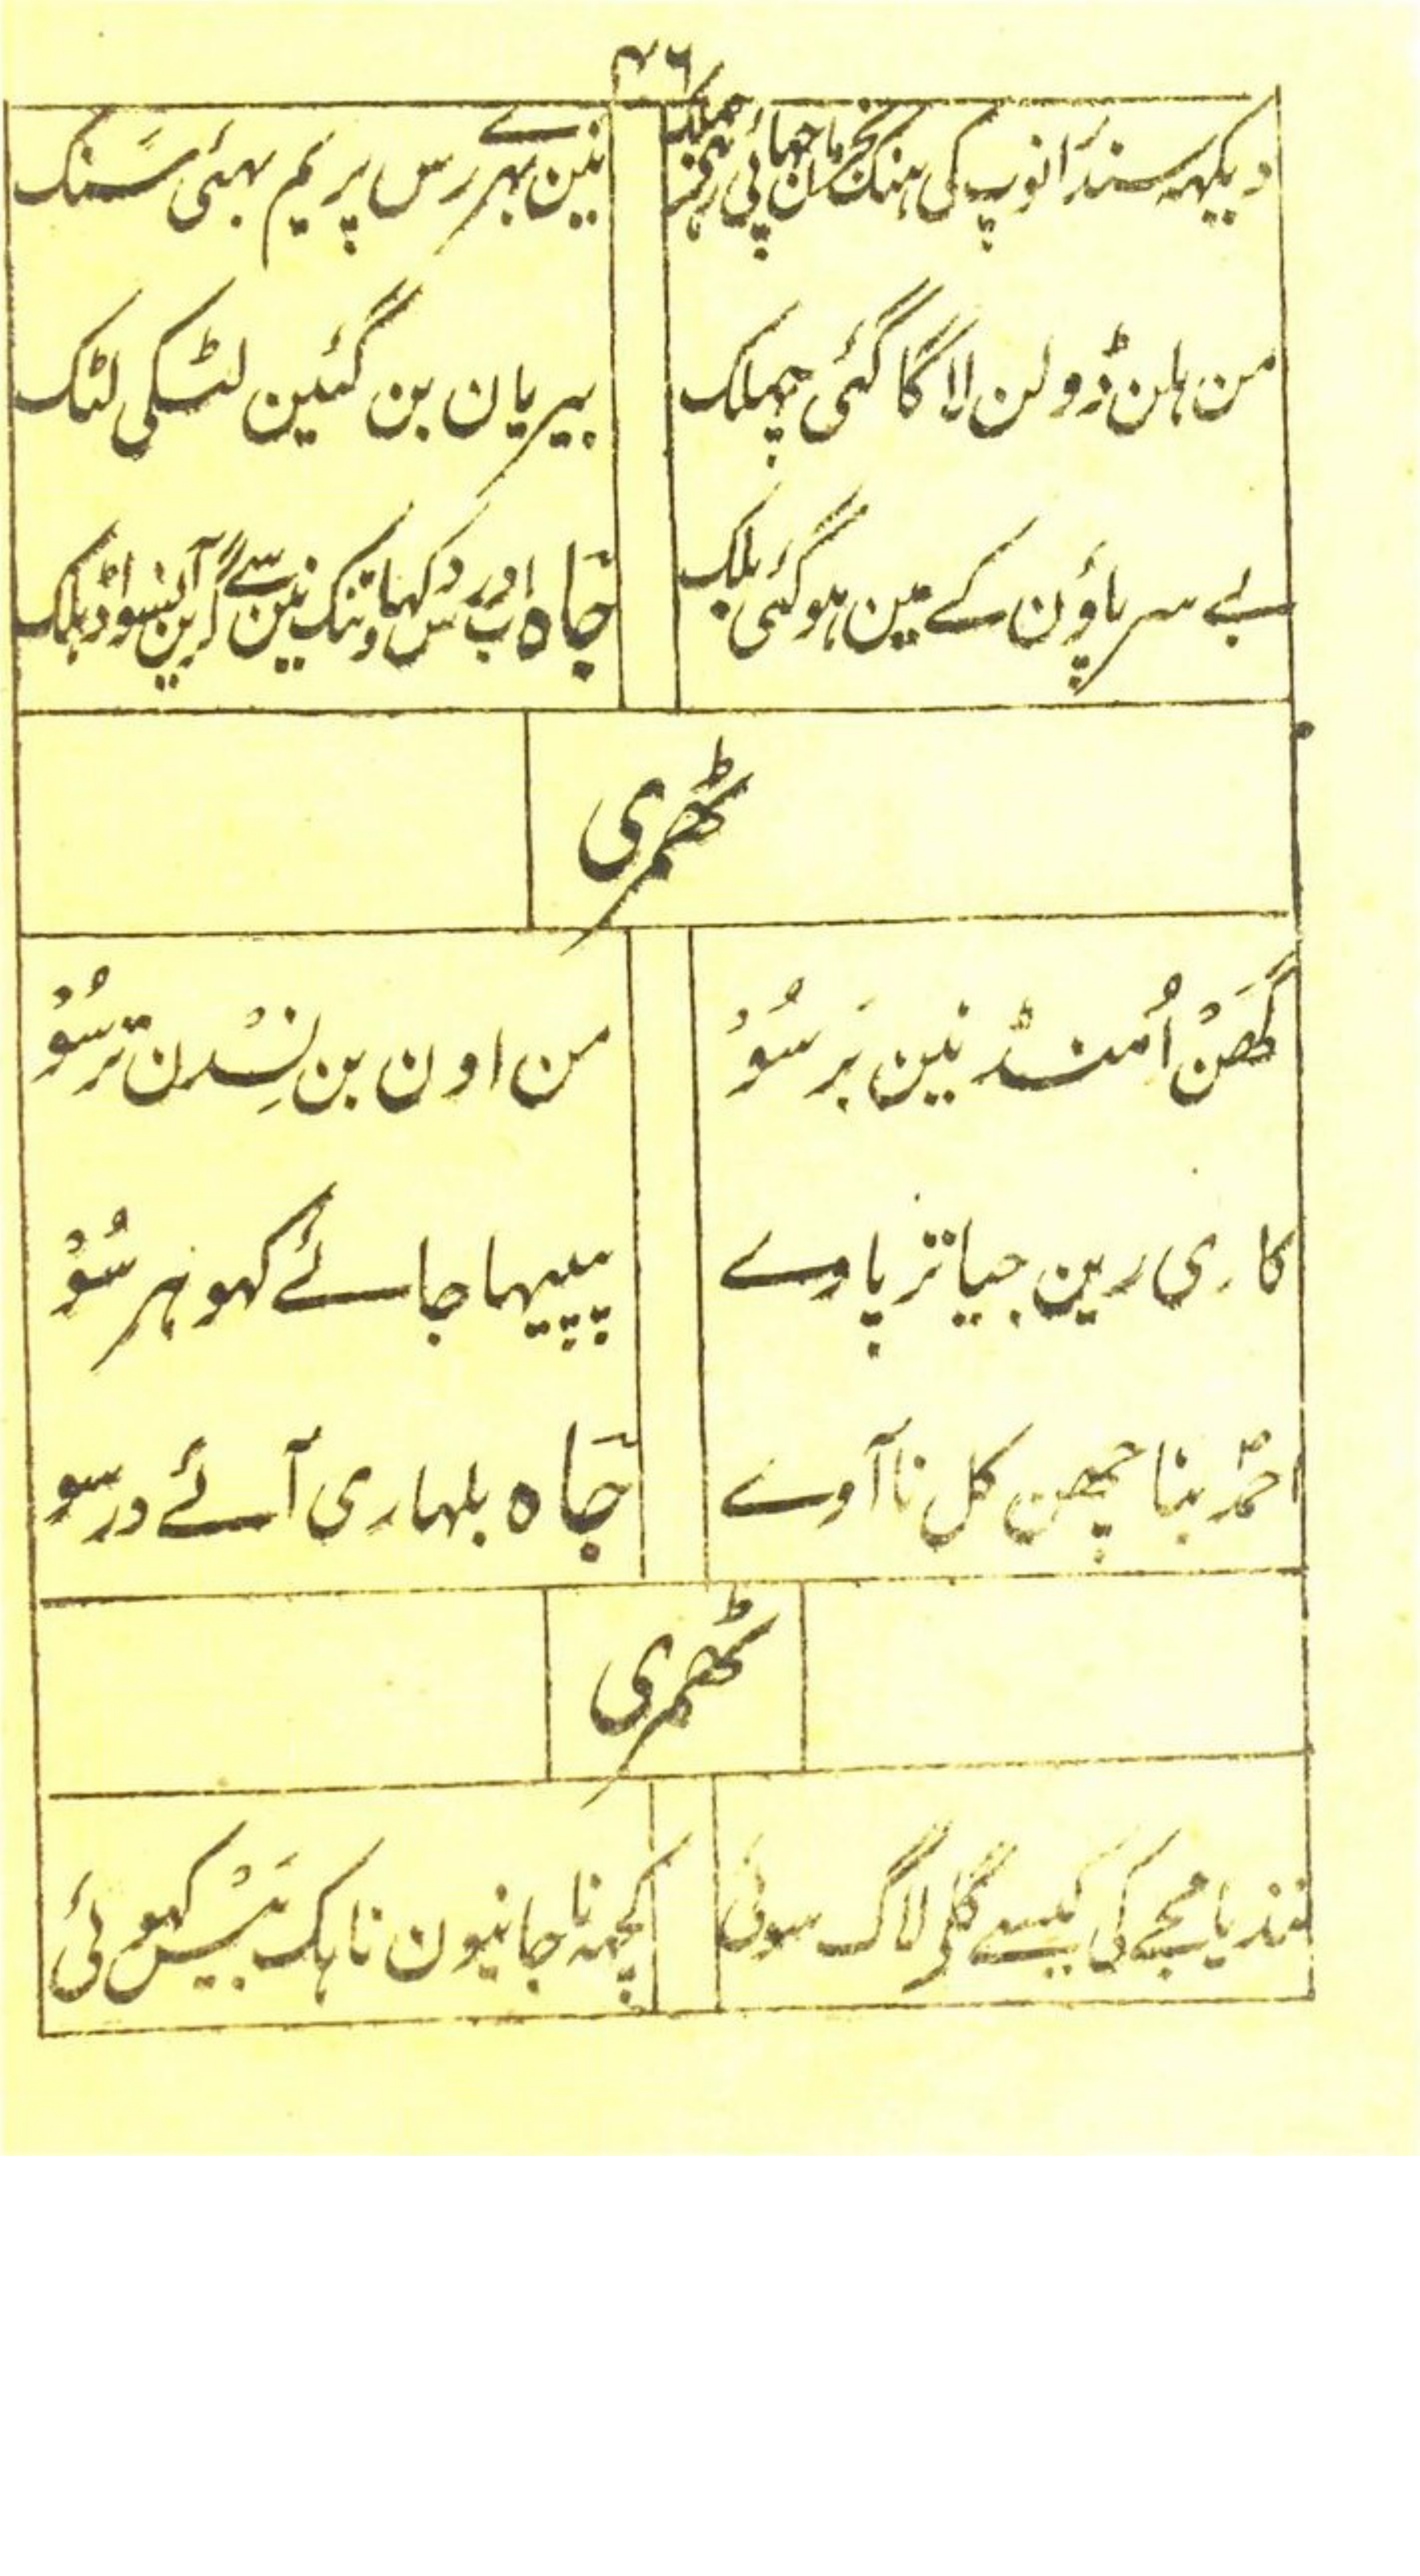 ۴۶
دیکہہ سندر انوپ کی
نین بہر رس پریم بہئی سنک
من ہلن ڈولن لاگا گئی چہلک
بیریان بن گئین لٹکی لٹک
بے سر پاؤن کے مین ہوگئی بلک
جاہ اور دکہاوتنک نین سے گرین آنسو
ٹھمری
گھَنْ اُمنڈ نین بَرسُوْ
من اون بن نِسْدن ترسُوْ
کاری رین جیا تڑپاوے
پپیہا جائے کہو ہر سُوْ
احمد بنا چھن کل نا آوے
جاہ بلہاری آئے درسو
ٹھمری
نندیا مجے کی کیسے گلی لاگ سوئی
کچہہ نا جانیون ناہک بَیْس کہوئی